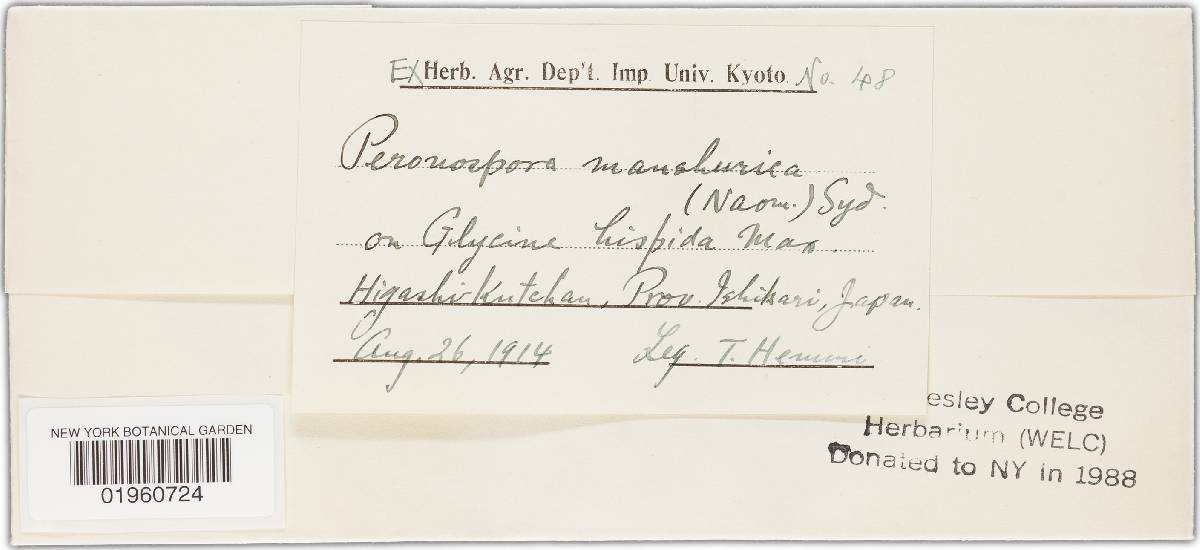 Ex Herb. Agr. Dep't. Imp. Univ. Kyoto. No. 48
Peronospora manshurica
(Naom.) Syd.
on Glycine hispida Max.
Higashi-Kutchan, Prov. Ishikari, Japan.
Aug. 26, 1914 Leg. T. Hemmi
esley College
Herbarium (WELC)
Donated to NY in 1988
NEW YORK BOTANICAL GARDEN
01960724